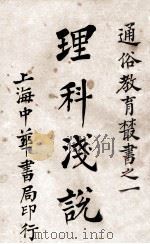 通俗教育叢書之一
理科淺説
上海中華書局印行